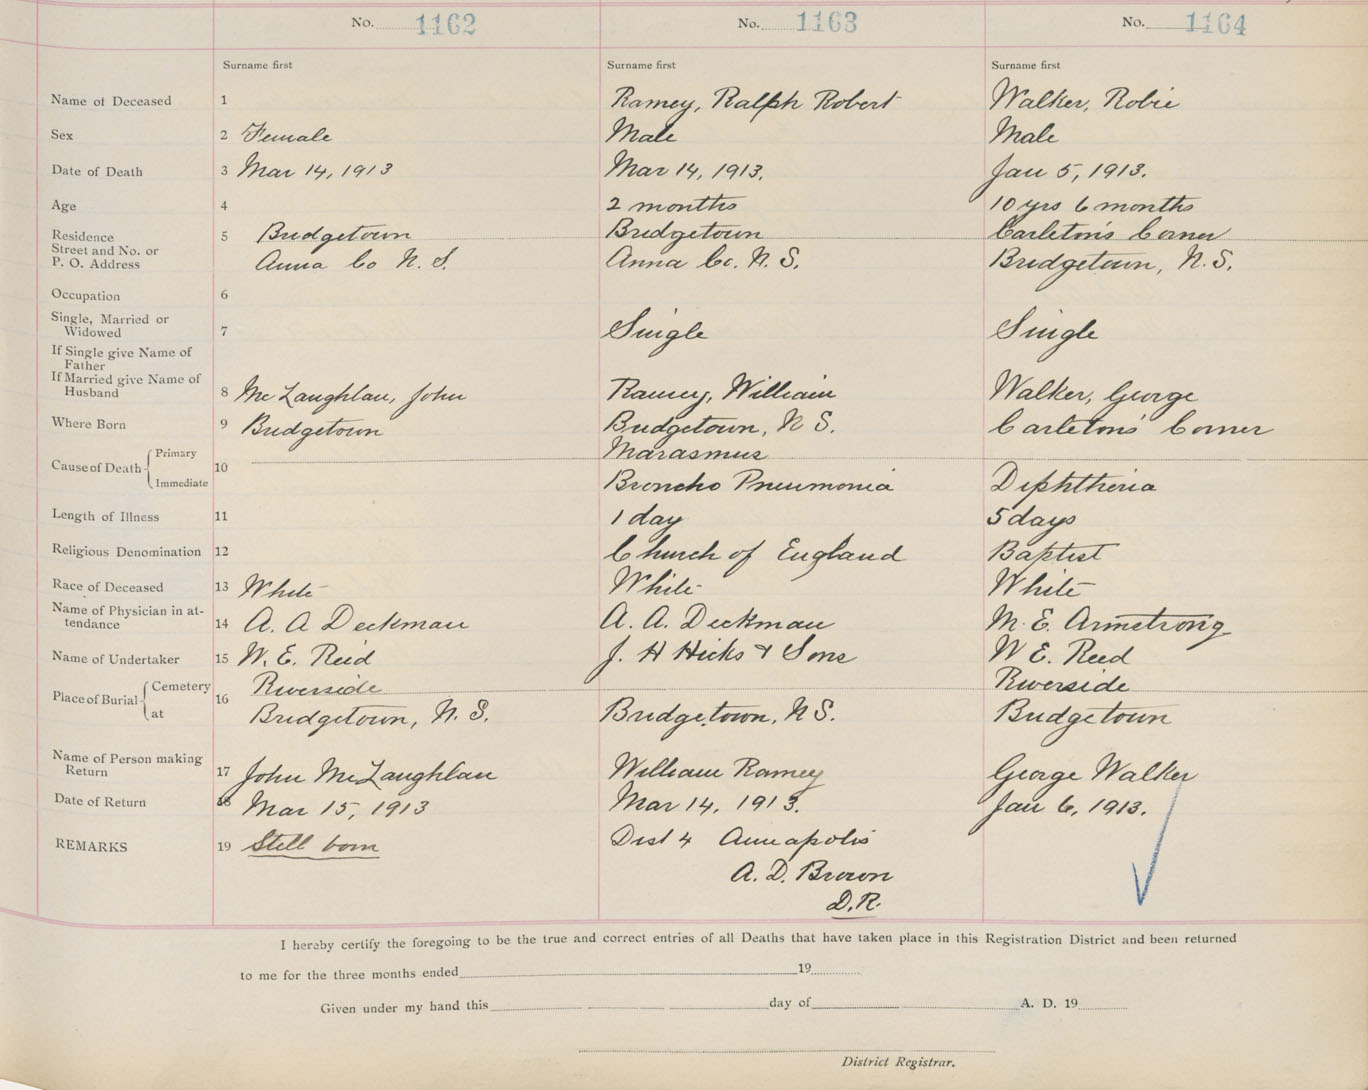 No. 1162 No. 1163 No. 1164
Surname first Surname first Surname first
Name of Deceased 1 Ramey, Ralph Robert Walker, Robie
Sex 2 Female Male Male
Date of Death 3 Mar 14, 1913 Mar 14, 1913. Jan 5, 1913.
Age 4 2 months 10 yrs 6 months
Residence 5 Bridgetown Bridgetown Carleton's Corner
Street and No. or
P. O. Address Anna Co N. S. Anna Co. N. S. Bridgetown, N. S.
Occupation 6
Single, Married or
Widowed 7 Single Single
If Single give Name of
Father
If Married give Name of
Husband 8 McLaughlan, John Ramey, William Walker, George
Where Born 9 Bridgetown Bridgetown, N S. Carleton's Corner
Cause of Death Primary 10 Marasmus
Immediate Broncho Pneumonia Diphtheria
Length of Illness 11 1 day 5 days
Religious Denomination 12 Church of England Baptist
Race of Deceased 13 White White White
Name of Physician in at-
tendance 14 A. A Deckman A. A. Deckman M. E. Armstrong
Name of Undertaker 15 W. E. Reid J. H Hicks & Sons W E. Reed
Place of Burial Cemetery 16 Riverside Riverside
at Bridgetown, N. S. Bridgetown, N S. Bridgetown
Name of Person making
Return 17 John McLaughlan William Ramey George Walker
Date of Return 18 Mar 15, 1913 Mar 14, 1913. Jan 6, 1913.
REMARKS 19 Still born Dist 4 Annapolis
A. D. Brown
D.R.
I hereby certify the foregoing to be the true and correct entries of all Deaths that have taken place in this Registration District and been returned
to me for the three months ended 19
Given under my hand this day of A. D. 19
District Registrar.